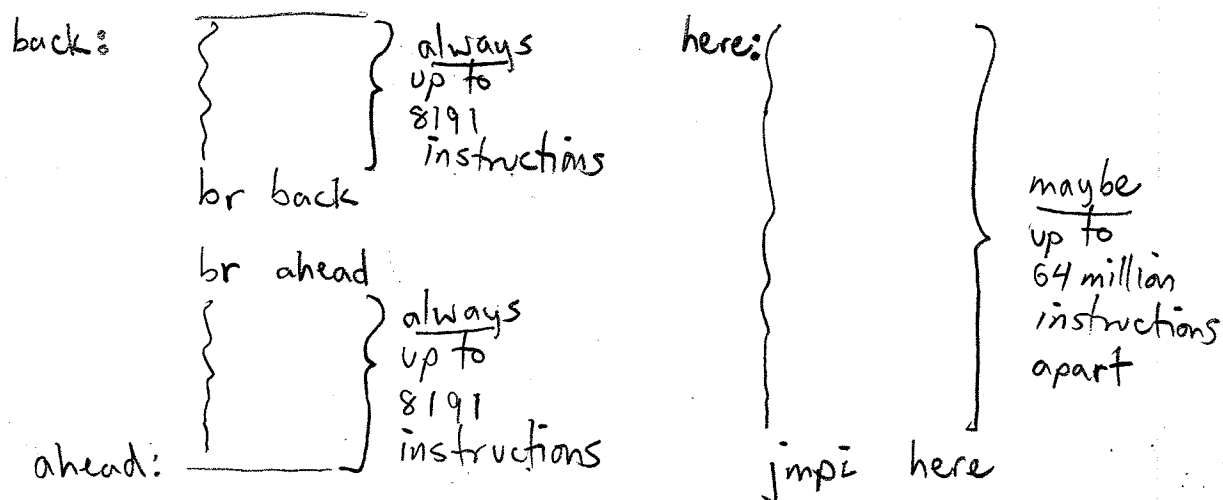 back:
always
up to
8191
instructions
br back
br ahead
always
up to
8191
instructions
ahead:
here:
maybe
up to
64 million
instructions
apart
jmpi here